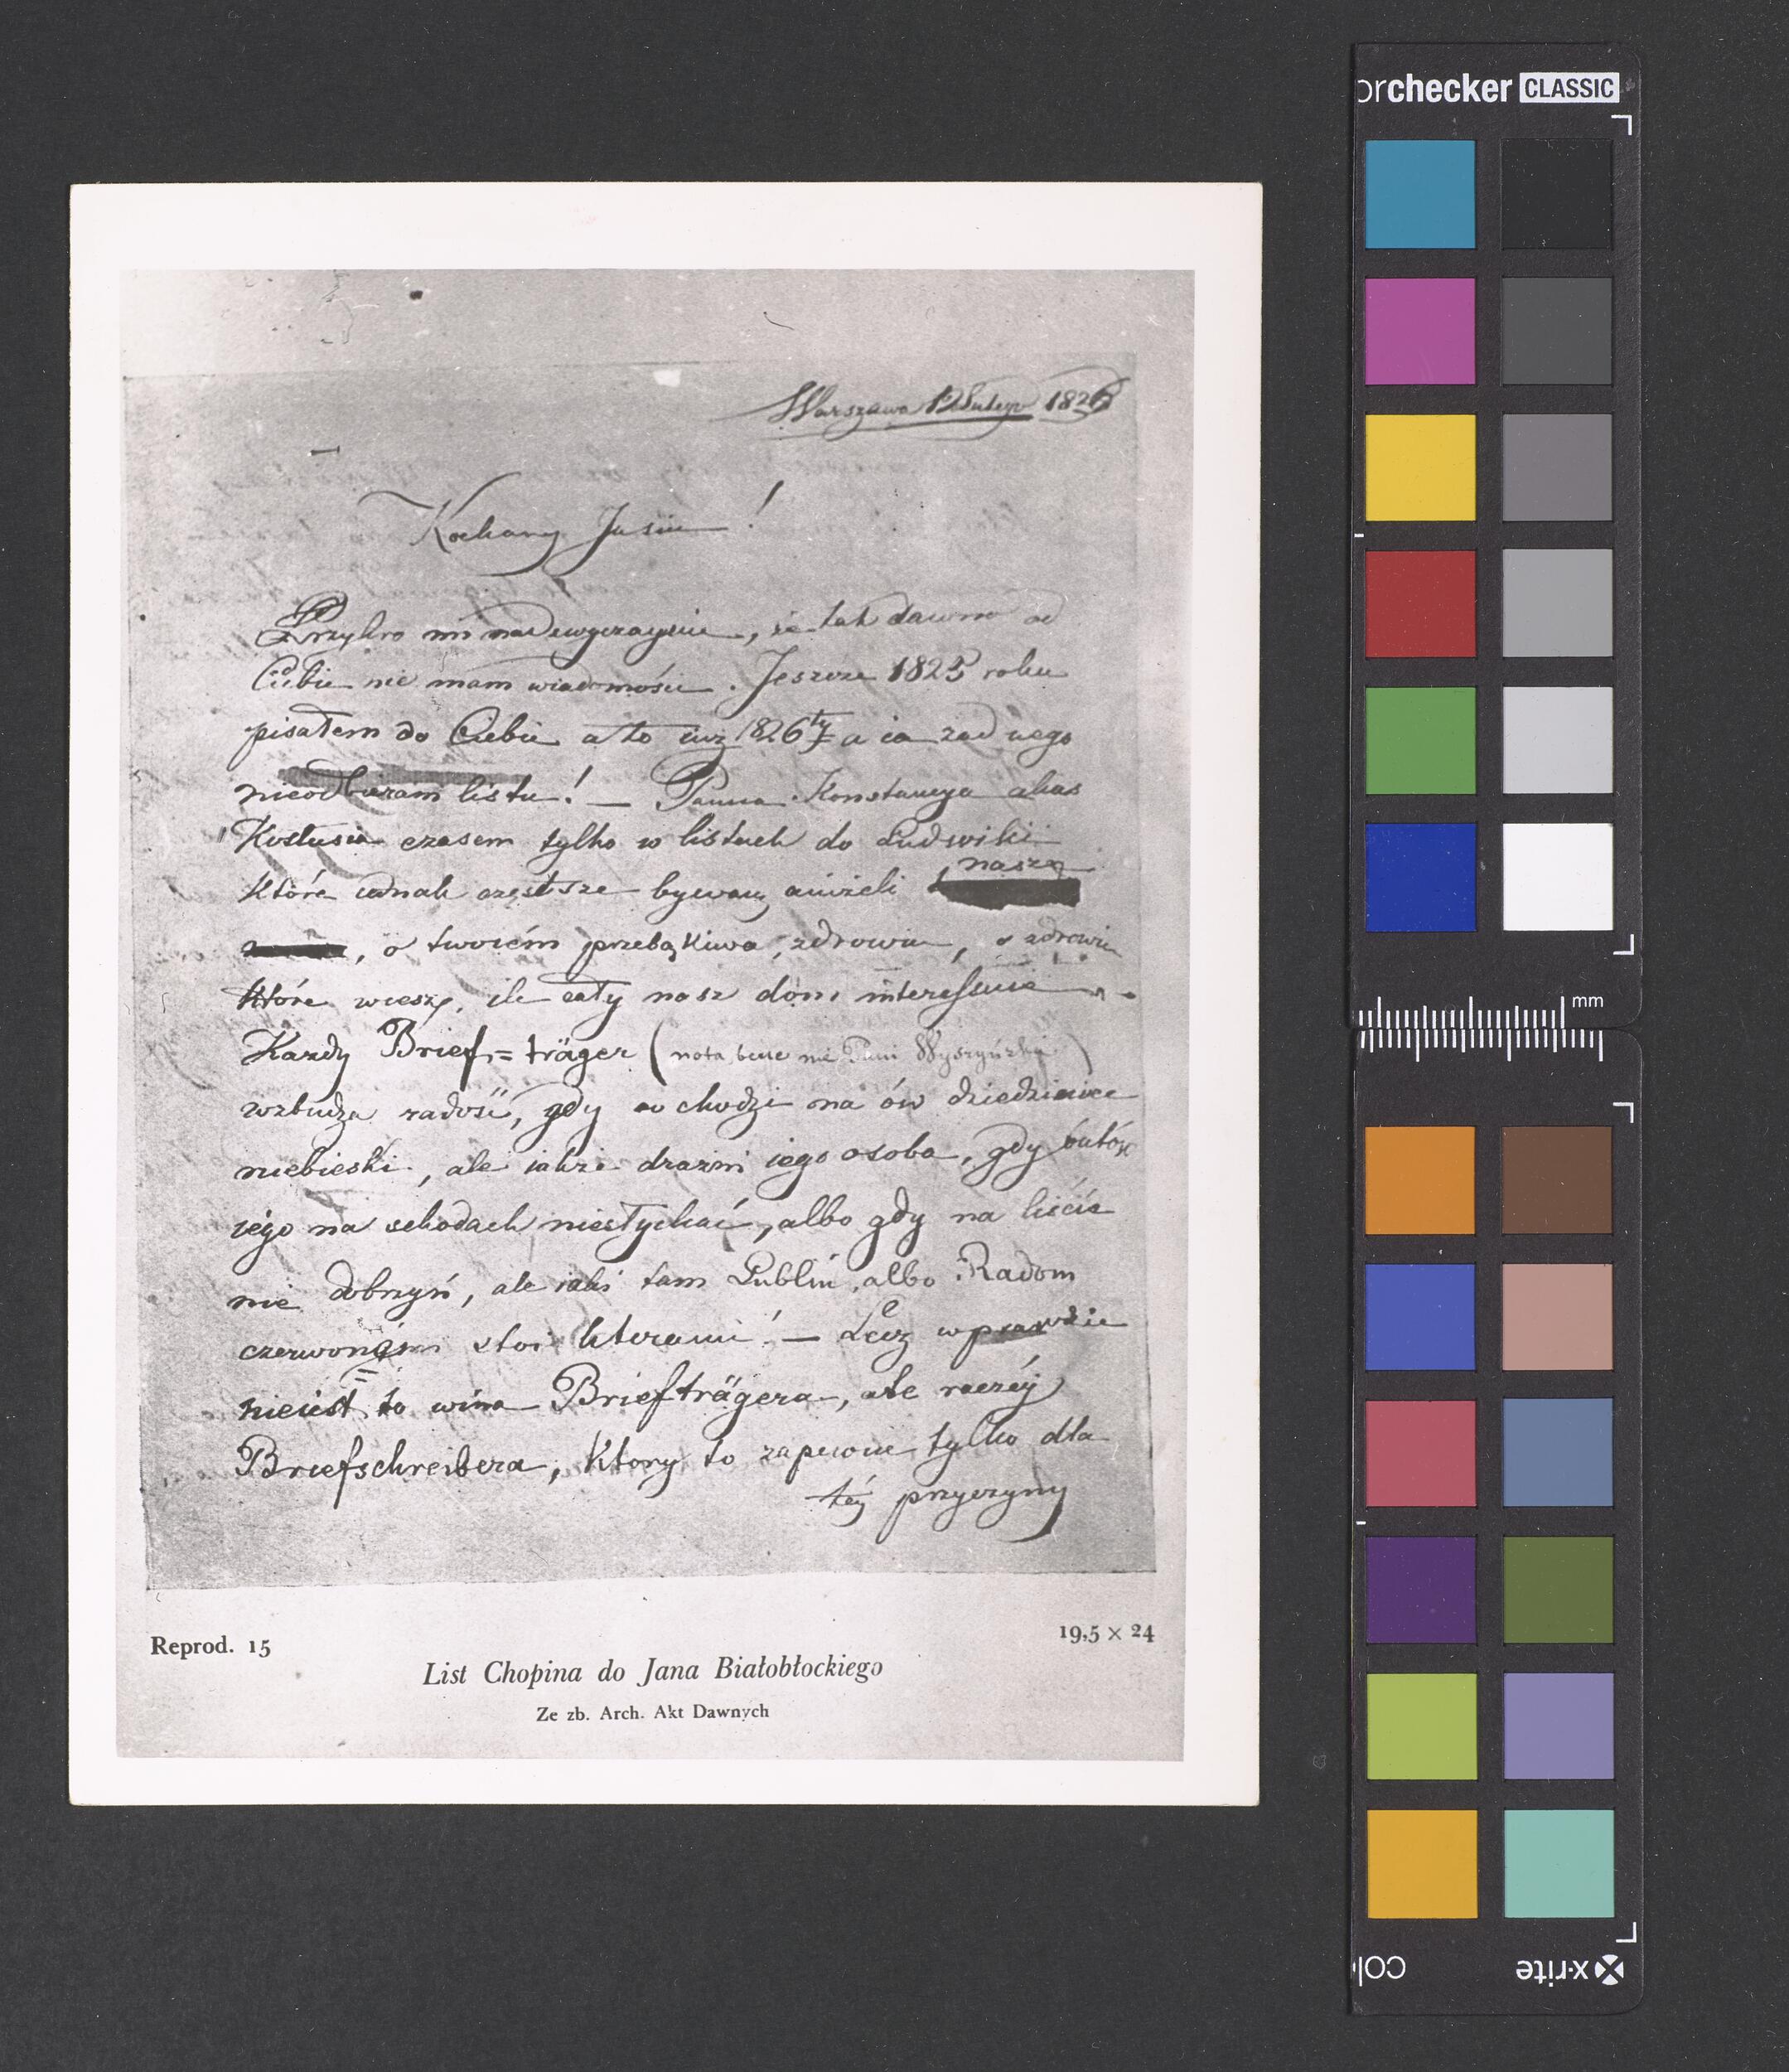 Warszawa 12 Lutego 1826
Kochany Jasiu!
Przykro mi nadewyczaynie, że tak dawno od
Ciebie nie mam wiadomości. Jeszcze 1825 roku
pisałem do Ciebie a to iuz 1826ty a ia zadnego
nieodbieram listu! — Panna Konstancya alias
Kostusia czasem tylko w listach do Ludwiki
które iednak częstsze bywaią aniżeli nasze
, o twoiém przebąkiwa zdrowiu, o zdrowiu
które wiesz, ile cały nasz dom interessuie.
Kazdy Brief=träger (nota bene nie Pani Wyszyńska)
wzbudza radość, gdy wchodzi na ów dziedziniec
niebieski, ale iakże drazni iego osoba, gdy butów
iégo na schodach niesłychać, albo gdy na liście
nie dobrzyń, ale iaki tam Lublin, albo Radom
czerwonémi stoi literami! — Lecz wprawdzie
nieiest to wina Briefträgera, ale raczéy
Briefschreibera, ktory to zapewne tylko dla
téy przyczyny
Reprod. 15
19,5 × 24
List Chopina do Jana Białobłockiego
Ze zb. Arch. Akt Dawnych
orchecker CLASSIC
mm
col
x-rite